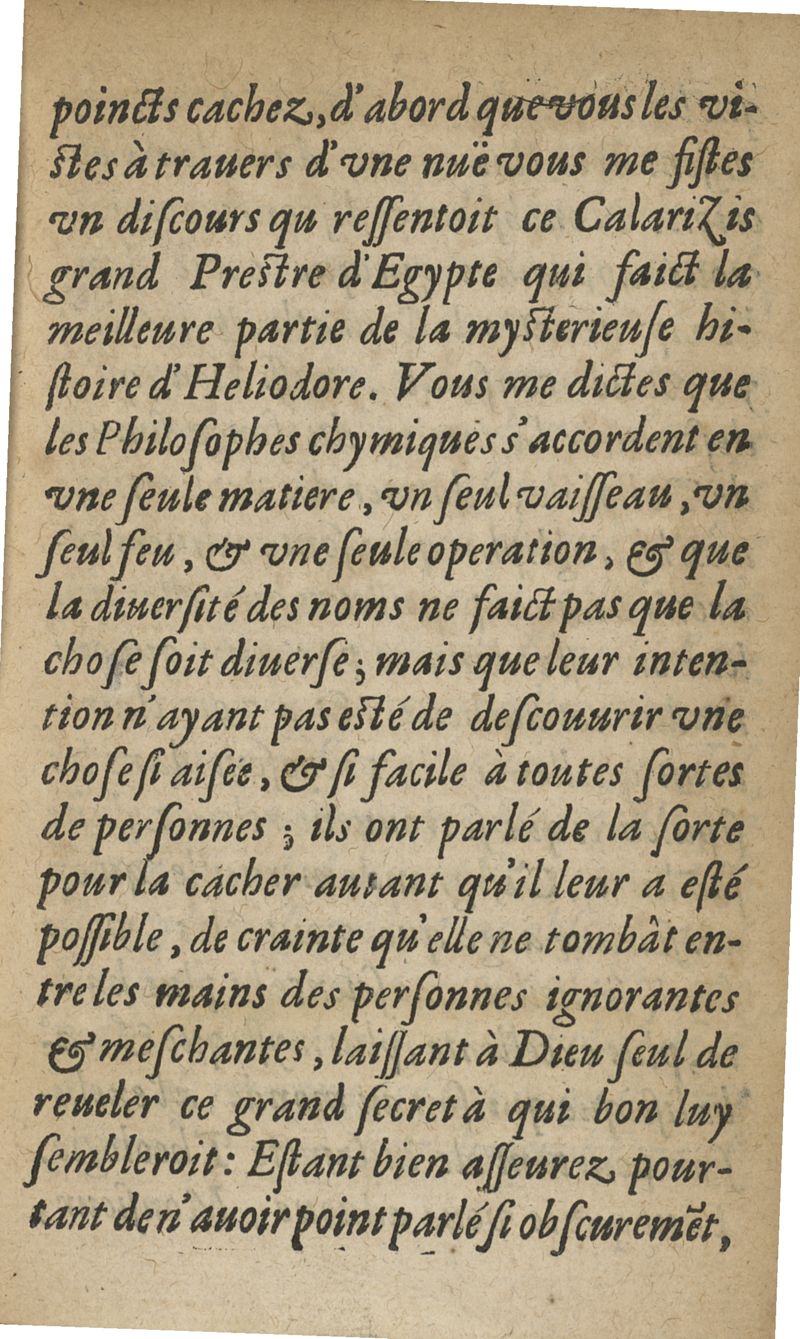 poincts cachez, d'abord que vous les vi-
stes à trauers d'vne nuë vous me fistes
vn discours qu ressentoit ce Calarizis
grand Prestre d'Egypte qui faict la
meilleure partie de la mysterieuse hi-
stoire d'Heliodore. Vous me dictes que
les Philosophes chymiques s'accordent en
vne seule matiere, vn seul vaisseau, vn
seul feu, & vne seule operation, & que
la diuersité des noms ne faict pas que la
chose soit diuerse; mais que leur inten-
tion n'ayant pas esté de descouurir vne
chose si aisée, & si facile à toutes sortes
de personnes; ils ont parlé de la sorte
pour la cacher autant qu'il leur a esté
possible, de crainte qu'elle ne tombât en-
tre les mains des personnes ignorantes
& meschantes, laissant à Dieu seul de
reueler ce grand secret à qui bon luy
sembleroit: Estant bien asseurez pour-
tant de n'auoir point parlé si obscuremẽt,